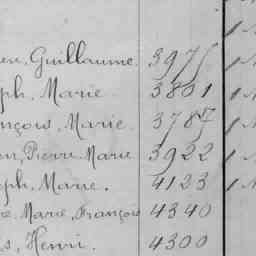 en, Guillaume. 3975
ph, Marie. 3801
nçois, Marie. 3787
en, Pierre Marie 3922
eph, Marie. 4123
e Marie, François 4340
s, Henri. 4300